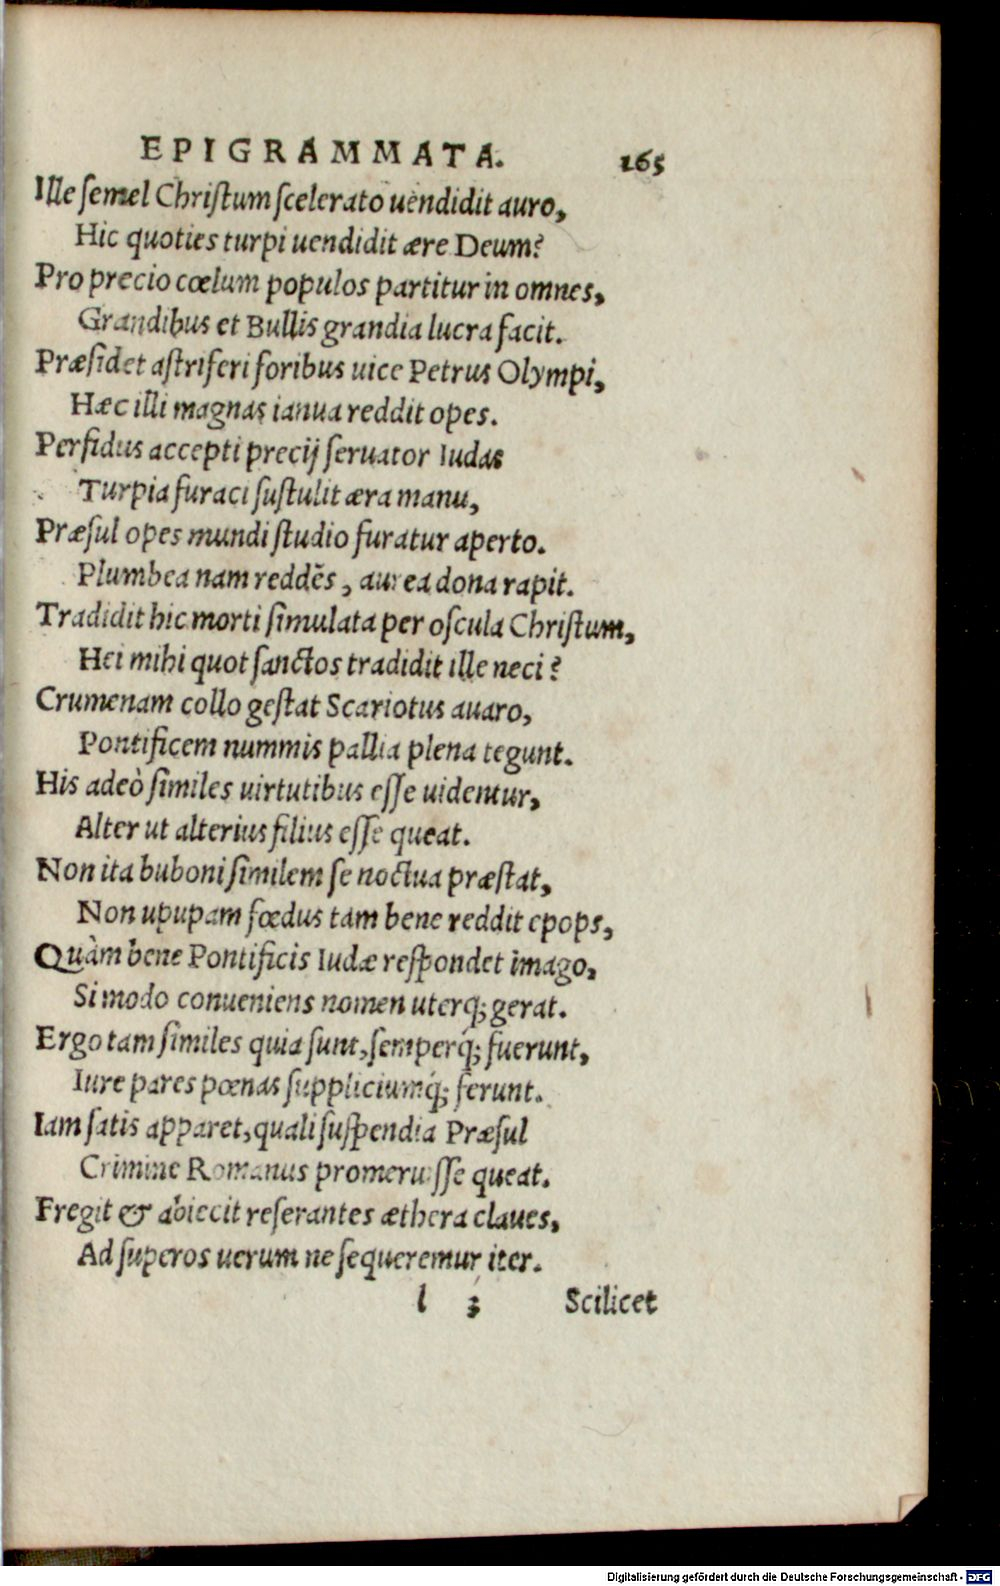 EPIGRAMMATA. 165
Ille ſemel Chriſtum ſcelerato uendidit auro,
Hic quoties turpi uendidit ære Deum?
Pro precio cœlum populos partitur in omnes,
Grandibus et Bullis grandia lucra facit.
Præſidet aſtriferi foribus uice Petrus Olympi,
Hæc illi magnas ianua reddit opes.
Perfidus accepti precij ſeruator Iudas
Turpia furaci ſuſtulit æra manu,
Præſul opes mundi ſtudio furatur aperto.
Plumbea nam reddẽs, aurea dona rapit.
Tradidit hic morti ſimulata per oſcula Chriſtum,
Hei mihi quot ſanctos tradidit ille neci?
Crumenam collo geſtat Scariotus auaro,
Pontificem nummis pallia plena tegunt.
His adeò ſimiles uirtutibus eſſe uidentur,
Alter ut alterius filius eſſe queat.
Non ita buboni ſimilem ſe noctua præſtat,
Non upupam fœdus tam bene reddit epops,
Quàm bene Pontificis Iudæ reſpondet imago,
Si modo conueniens nomen uterq; gerat.
Ergo tam ſimiles quia ſunt, ſemperq́; fuerunt,
Iure pares pœnas ſuppliciumq́; ferunt.
Iam ſatis apparet, quali ſuſpendia Præſul
Crimine Romanus promeruiſſe queat.
Fregit & abiecit reſerantes æthera claues,
Ad ſuperos uerum ne ſequeremur iter.
l 3 Scilicet
Digitalisierung gefördert durch die Deutsche Forschungsgemeinschaft - DFG